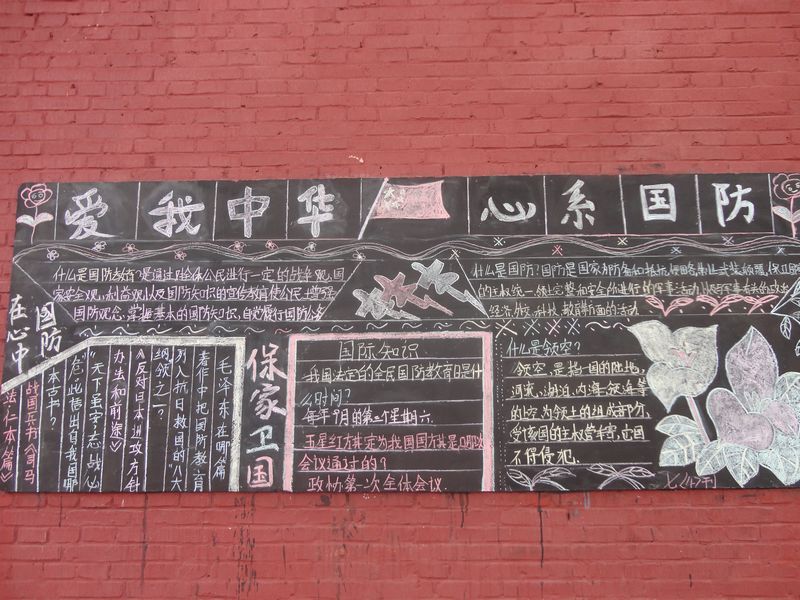 爱我中华
心系国防
什么是国防教育?是通过对全体公民进行一定的战争观,国
家安全观,利益观以及国防知识的宣传教育使公民增强
国防观念,掌握基本的国防知识,自觉履行国防义务
什么是国防?国防是国家为防备和抵抗侵略制止武装颠覆,保卫国家
的主权统一领土完整和安全所进行的军事活动以及与军事有关的政治
经济,外交,科技,教育等方面的活动
国防
在心中
毛泽东在哪篇
著作中把国防教育
列入抗日救国的八大
纲领之一?
《反对日本进攻方针
办法和前途》
"天下虽安,忘战必
危"此语出自我国哪
本古书?
战国兵书《司马
法·仁本篇》
保家卫国
国际知识
我国法定的全民国防教育日是什
么时间?
每年9月的第三个星期六
五星红旗定为我国国旗是哪次
会议通过的?
政协第一次全体会议.
什么是领空?
领空是指一国的陆地,
河流,湖泊,内海,领海等
的上空,为领土的组成部分,
受该国的主权管辖,它国
不得侵犯.